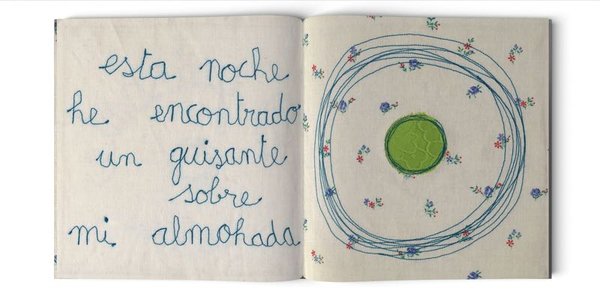 esta noche
he encontrado
un guisante
sobre
mi almohada